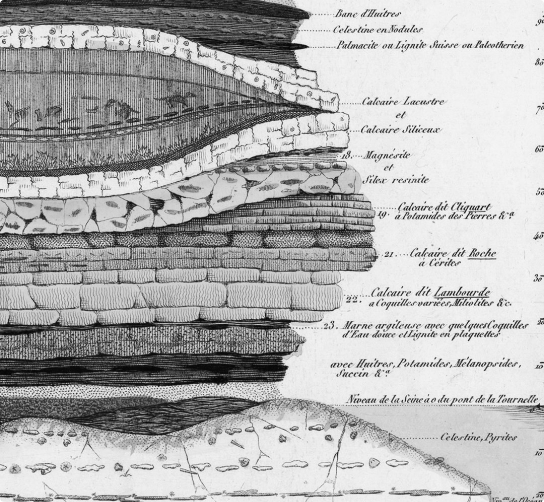 Banc d'Huitres
Celestine en Nodules
Palmacite ou Lignite Suisse ou Paleotherien
Calcaire Lacustre
et
Calcaire Siliceux
18. Magnésite
et
Silex resinite
19. Calcaire dit Cliquart
à Potamides des Pierres &ca
21. Calcaire dit Roche
à Cérites
22. Calcaire dit Lambourde
a Coquilles variées, Miliolites &c.
23. Marne argileuse avec quelques Coquilles
d'Eau douce et Lignite en plaquettes
avec Huîtres, Potamides, Mélanopsides,
Succin &a
Niveau de la Seine à 0 du pont de la Tournelle
Celestine, Pyrites
80
70
60
50
40
30
10
10